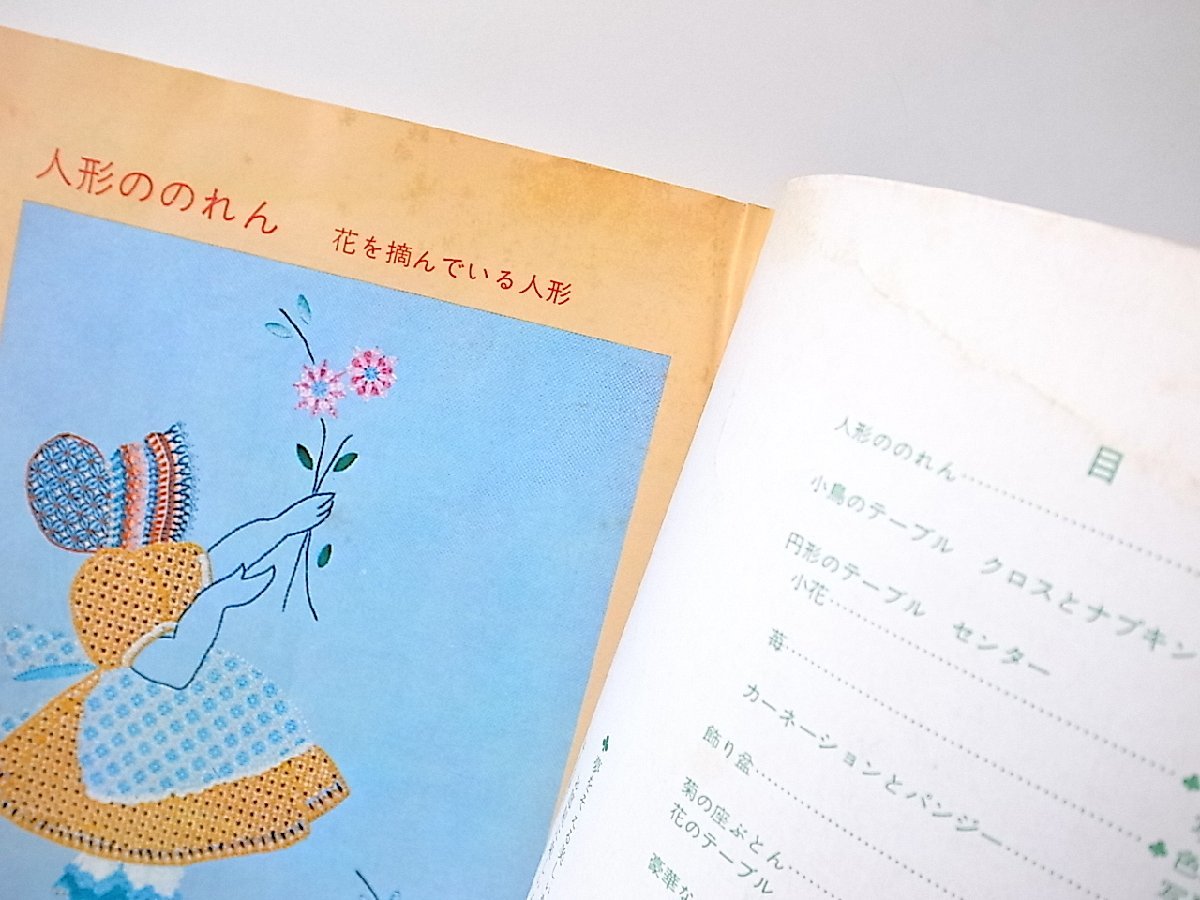 人形ののれん
花を摘んでいる人形
目
人形ののれん
小鳥のテーブル クロスとナプキン
円形のテーブル センター
小花
苺
カーネーションとパンジー
飾り盆
菊の座ぶとん
花のテーブル
豪華な
色